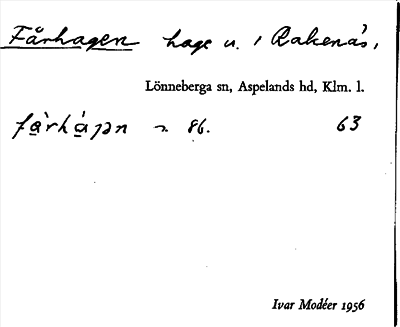 Fårhagen hage u. / Rakenäs,
Lönneberga sn, Aspelands hd, Klm. l.
86. 63
Ivar Modéer 1956